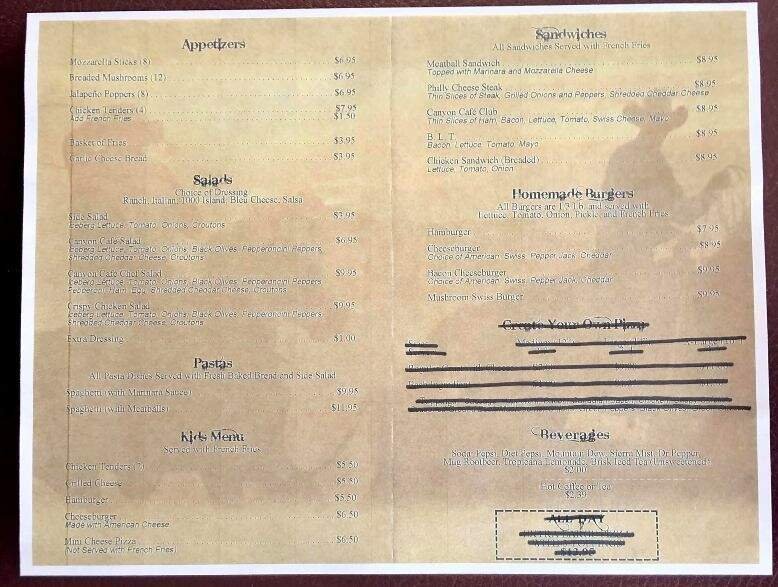 Appetizers
Mozzarella Sticks (8) $6.95
Breaded Mushrooms (12) $6.95
Jalapeño Poppers (8) $6.95
Chicken Tenders (4) $7.95
Add French Fries $1.50
Basket of Fries $3.95
Garlic Cheese Bread $3.95
Salads
Choice of Dressing
Ranch, Italian, 1000 Island, Bleu Cheese, Salsa
Side Salad $3.95
Iceberg Lettuce, Tomato, Onions, Croutons
Canyon Café Salad $6.95
Iceberg Lettuce, Tomato, Onions, Black Olives, Pepperoncini Peppers,
Shredded Cheddar Cheese, Croutons
Canyon Café Chef Salad $9.95
Iceberg Lettuce, Tomato, Onions, Black Olives, Pepperoncini Peppers,
Pepperoni, Ham, Egg, Shredded Cheddar Cheese, Croutons
Crispy Chicken Salad $9.95
Iceberg Lettuce, Tomato, Onions, Black Olives, Pepperoncini Peppers,
Shredded Cheddar Cheese, Croutons
Extra Dressing $1.00
Pastas
All Pasta Dishes Served with Fresh Baked Bread and Side Salad
Spaghetti (with Marinara Sauce) $9.95
Spaghetti (with Meatballs) $11.95
Kids Menu
Served with French Fries
Chicken Tenders (2) $5.50
Grilled Cheese $5.50
Hamburger $5.50
Cheeseburger $6.50
Made with American Cheese
Mini Cheese Pizza $6.50
(Not Served with French Fries)
Sandwiches
All Sandwiches Served with French Fries
Meatball Sandwich $8.95
Topped with Marinara and Mozzarella Cheese
Philly Cheese Steak $8.95
Thin Slices of Steak, Grilled Onions and Peppers, Shredded Cheddar Cheese
Canyon Café Club $8.95
Thin Slices of Ham, Bacon, Lettuce, Tomato, Swiss Cheese, Mayo
B. L. T. $8.95
Bacon, Lettuce, Tomato, Mayo
Chicken Sandwich (Breaded) $8.95
Lettuce, Tomato, Onion
Homemade Burgers
All Burgers are 1/3 Lb. and served with
Lettuce, Tomato, Onion, Pickle, and French Fries
Hamburger $7.95
Cheeseburger $8.95
Choice of American, Swiss, Pepper Jack, Cheddar
Bacon Cheeseburger $9.95
Choice of American, Swiss, Pepper Jack, Cheddar
Mushroom Swiss Burger $9.95
Create Your Own Pizza
Beverages
Soda: Pepsi, Diet Pepsi, Mountain Dew, Sierra Mist, Dr Pepper,
Mug Rootbeer, Tropicana Lemonade, Brisk Iced Tea (Unsweetened)
$2.00
Hot Coffee or Tea
$2.39
ALL DAY